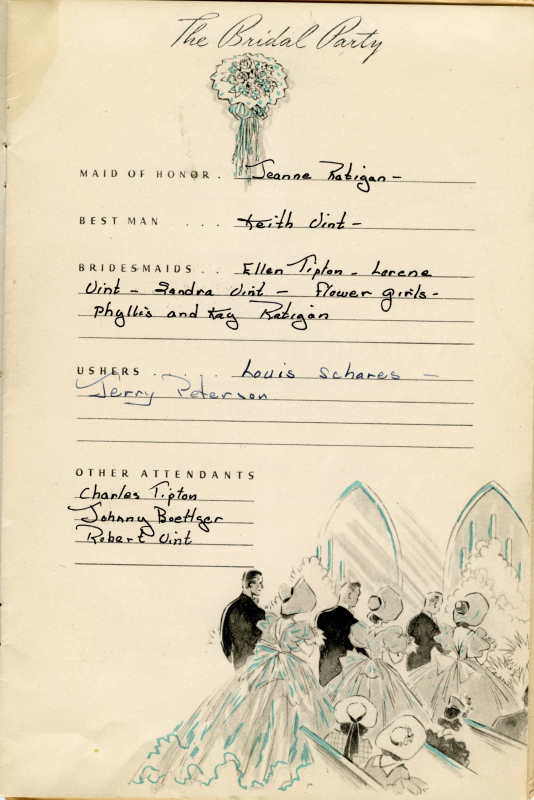 The Bridal Party
MAID OF HONOR . Jeanne Ratigan -
BEST MAN . . . Keith Vint -
BRIDESMAIDS . . Ellen Tipton - Lorene
Vint - Sandra Vint - flower girls -
Phyllis and Kay Ratigan
USHERS . . . . . Louis Schares -
Jerry Peterson
OTHER ATTENDANTS
Charles Tipton
Johnny Boettger
Robert Vint